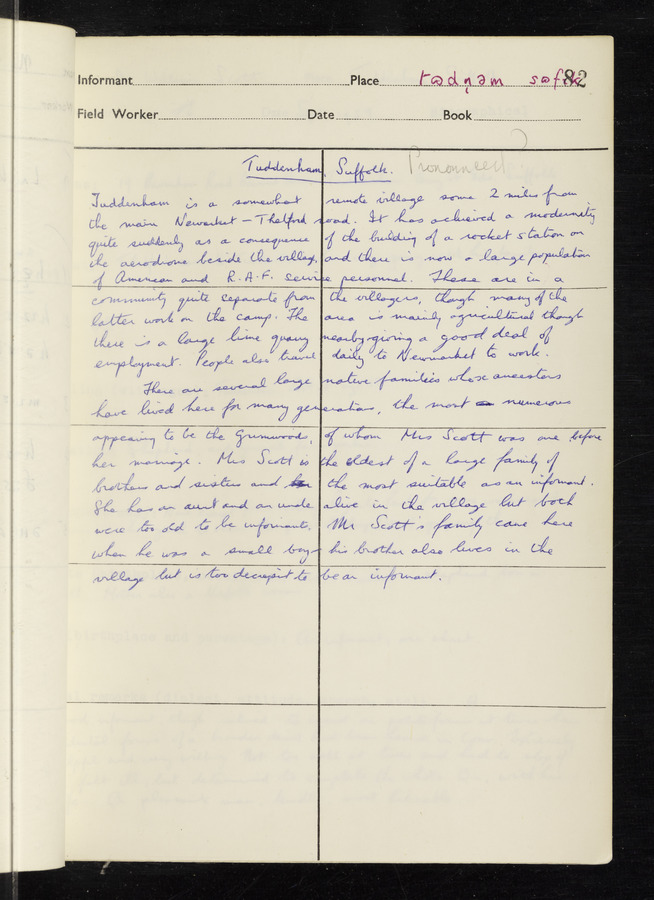 Informant Place 82
Field Worker Date Book
Tuddenham, Suffolk. Pronounced?
Tuddenham is a somewhat remote village some 2 miles from
the main Newmarket - Thetford road. It has achieved a modernity
quite suddenly as a consequence of the building of a rocket station on
the aerodrome beside the village, and there is now a large population
of American and R.A.F. service personnel. These are in a
community quite separate from the villagers, though many of the
latter work on the camp. The area is mainly agricultural though
there is a large lime quarry nearby giving a good deal of
employment. People also travel daily to Newmarket to work.
There are several large native families whose ancestors
have lived here for many generations, the most numerous
appearing to be the Grimwoods, of whom Mrs Scott was one before
her marriage. Mrs Scott is the eldest of a large family of
brothers and sisters and the most suitable as an informant.
She has an aunt and an uncle alive in the village but both
were too old to be informants. Mr Scott's family came here
when he was a small boy - his brother also lives in the
village but is too decrepit to be an informant.